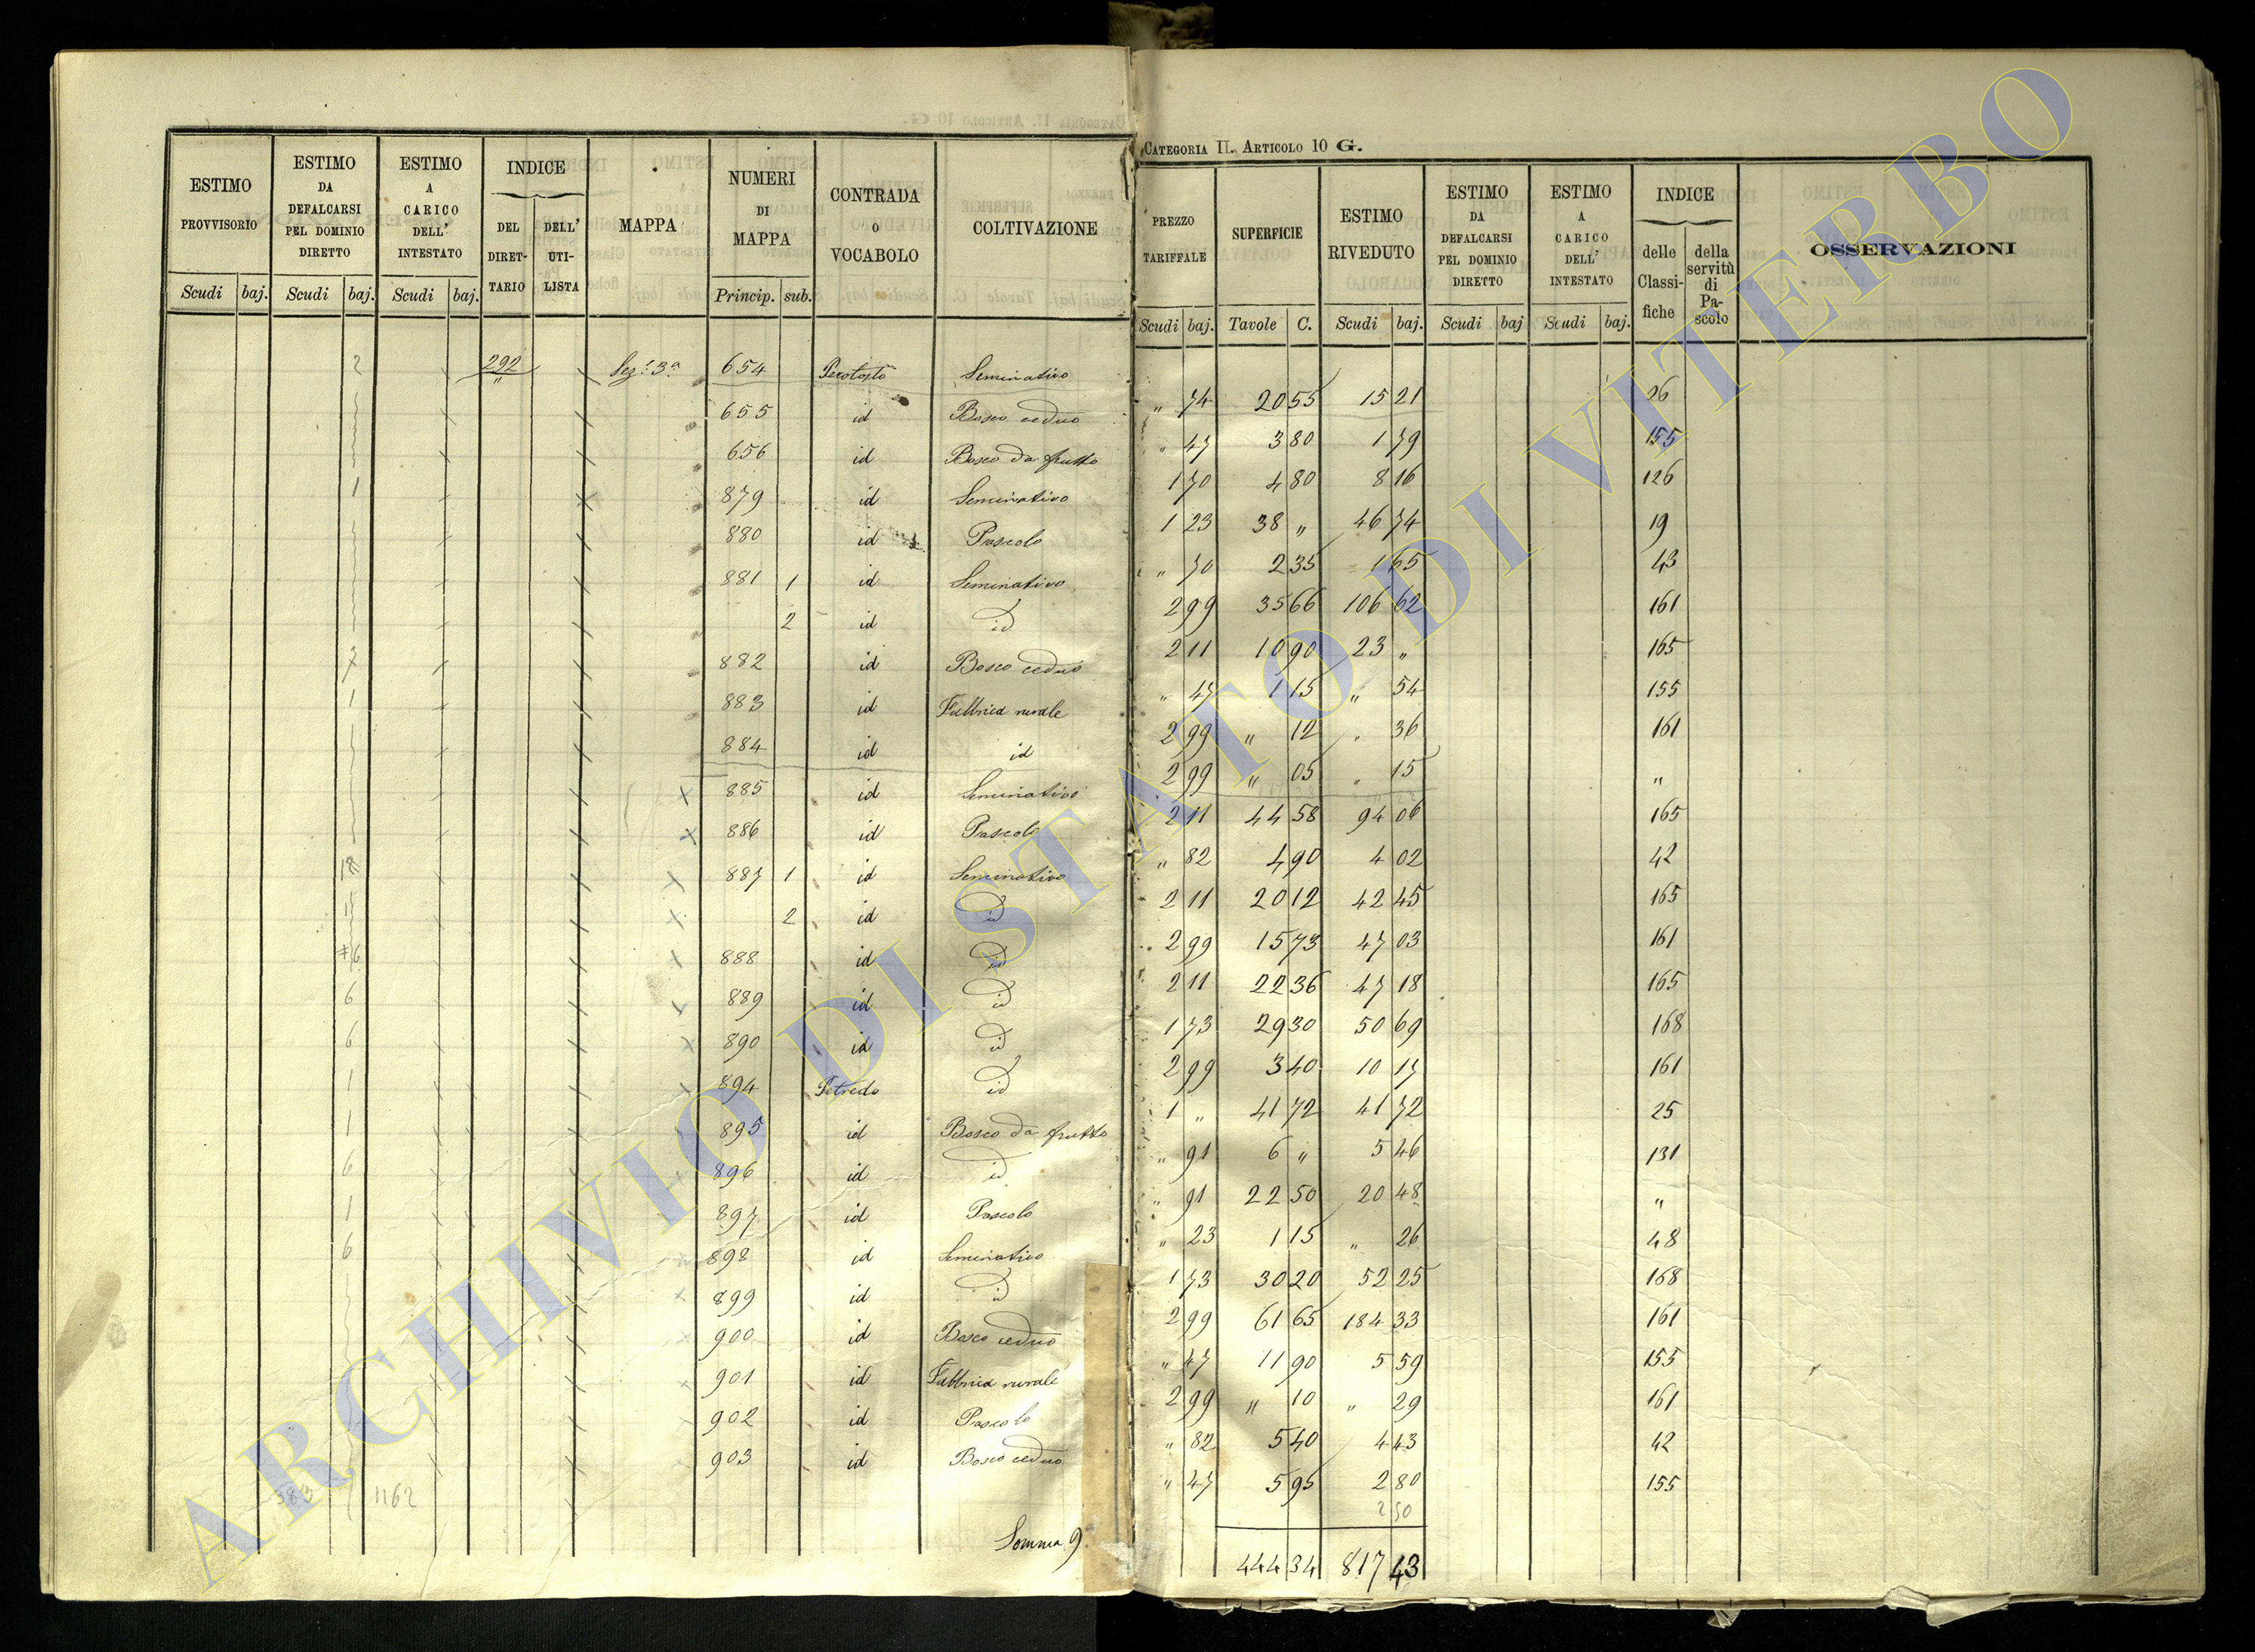 CATEGORIA II. ARTICOLO 10 G.
ESTIMO PROVVISORIO | ESTIMO DA DEFALCARSI PEL DOMINIO DIRETTO | ESTIMO A CARICO DELL' INTESTATO | INDICE | MAPPA | NUMERI DI MAPPA | CONTRADA O VOCABOLO | COLTIVAZIONE | PREZZO TARIFFALE | SUPERFICIE | ESTIMO RIVEDUTO | ESTIMO DA DEFALCARSI PEL DOMINIO DIRETTO | ESTIMO A CARICO DELL' INTESTATO | INDICE | OSSERVAZIONI
Scudi | baj. | Scudi | baj. | Scudi | baj. | DEL DIRETTARIO | DELL' UTILISTA | Princip. | sub. | Scudi | baj. | Tavole | C. | Scudi | baj. | Scudi | baj | Scudi | baj. | delle Classifiche | della servitù di Pascolo
2 | 292 | Sez. 3a | 654 | Perotosto | Seminativo | " 74 | 20 55 | 15 21 | 26
655 | id | Bosco ceduo | " 47 | 3 80 | 1 79 | 155
656 | id | Bosco da frutto | 1 70 | 4 80 | 8 16 | 126
1 | 879 | id | Seminativo | 1 23 | 38 " | 46 74 | 19
880 | id | Pascolo | " 70 | 2 35 | 1 65 | 43
881 | 1 | id | Seminativo | 2 99 | 35 66 | 106 62 | 161
2 | id | id | 2 11 | 10 90 | 23 " | 165
882 | id | Bosco ceduo | " 47 | 1 15 | " 54 | 155
1 | 883 | id | Fabbrica rurale | 2 99 | " 12 | " 36 | 161
884 | id | id | 2 99 | " 05 | " 15 | "
885 | id | Seminativo | 2 11 | 44 58 | 94 06 | 165
886 | id | Pascolo | " 82 | 4 90 | 4 02 | 42
887 | 1 | id | Seminativo | 2 11 | 20 12 | 42 45 | 165
2 | id | id | 2 99 | 15 73 | 47 03 | 161
888 | id | id | 2 11 | 22 36 | 47 18 | 165
6 | 889 | id | id | 1 73 | 29 30 | 50 69 | 168
6 | 890 | id | id | 2 99 | 3 40 | 10 17 | 161
1 | 894 | Petredo | id | 1 " | 41 72 | 41 72 | 25
1 | 895 | id | Bosco da frutto | " 91 | 6 " | 5 46 | 131
6 | 896 | id | id | " 91 | 22 50 | 20 48 | "
1 | 897 | id | Pascolo | " 23 | 1 15 | " 26 | 48
6 | 898 | id | Seminativo | 1 73 | 30 20 | 52 25 | 168
899 | id | id | 2 99 | 61 65 | 184 33 | 161
900 | id | Bosco ceduo | " 47 | 11 90 | 5 59 | 155
901 | id | Fabbrica rurale | 2 99 | " 10 | " 29 | 161
902 | id | Pascolo | " 82 | 5 40 | 4 43 | 42
903 | id | Bosco ceduo | " 47 | 5 95 | 2 80 | 155
383 | 1162 | 2 50
Somma 9 | 444 34 | 817 43
ARCHIVIO DI STATO DI VITERBO